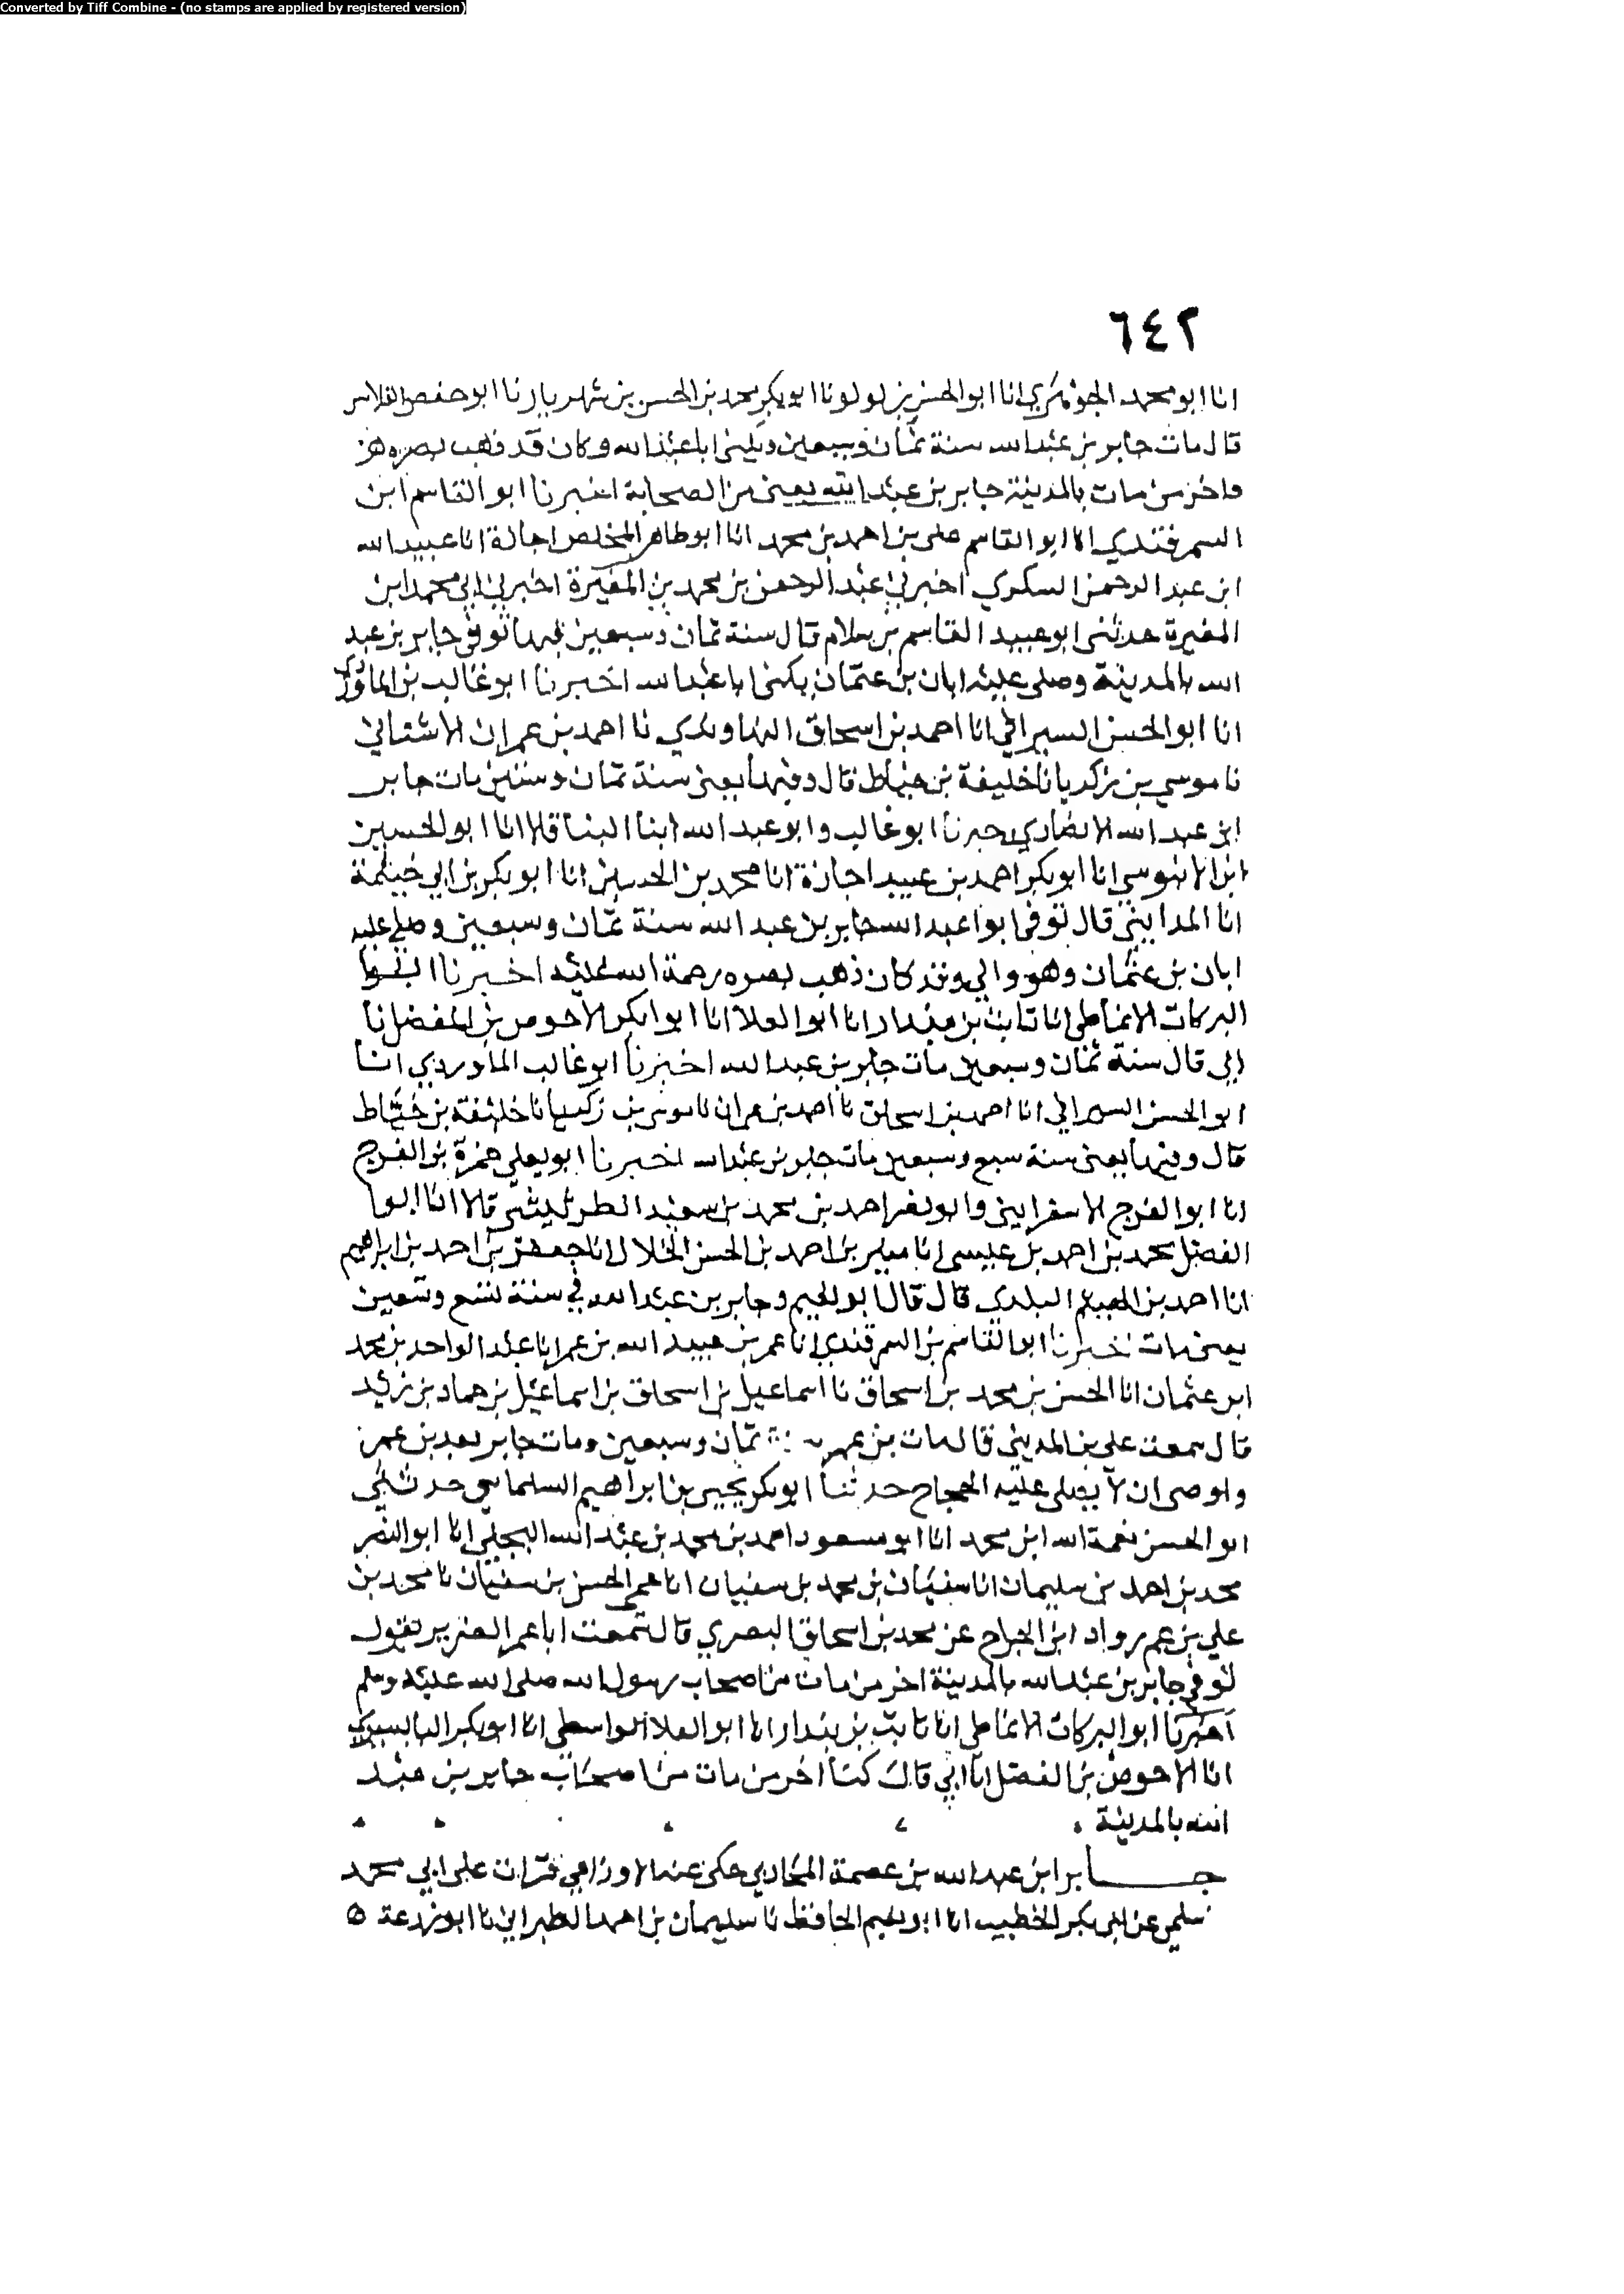 Converted by Tiff Combine - (no stamps are applied by registered version)
٦٤٢
انا ابو محمد الجوهري انا ابو الحسن بن لولو نا ابو بكر محمد بن الحسن بن شهريار نا ابو حفص الفلاس
قال مات جابر بن عبد الله سنة ثمان وسبعين ويكنى ابا عبد الله وكان قد ذهب بصره هو
واخر من مات بالمدينة جابر بن عبد الله يعني من الصحابة اخبرنا ابو القاسم ابن
السمرقندي انا ابو القاسم علي بن احمد بن محمد انا ابو طاهر المخلص اجازة انا عبيد الله
ابن عبد الرحمن السكري اخبرني عبد الرحمن بن محمد بن المغيرة اخبرني ابي محمد ابن
المغيرة حدثني ابو عبيد القاسم بن سلام قال سنة ثمان وسبعين فيها توفي جابر بن عبد
الله بالمدينة وصلى عليه ابان بن عثمان يكنى ابا عبد الله اخبرنا ابو غالب بن الماوردي
انا ابو الحسن السيرافي انا احمد بن اسحاق النهاوندي نا احمد بن عمران الاشناني
نا موسى بن زكريا نا خليفة بن خياط قال وفيها يعني سنة ثمان وستين مات جابر
ابن عبد الله الانصاري خبرنا ابو غالب وابو عبد الله ابنا البنا قالا انا ابو الحسين
ابن الابنوسي انا ابو بكر احمد بن عبيد اجازة انا محمد بن الحسين انا ابو بكر بن ابي خيثمة
انا المدايني قال توفي ابوا عبد الله جابر بن عبد الله سنة ثمان وسبعين وصلي عليه
ابان بن عثمان وهو والي وقد كان ذهب بصره رحمة الله عليه اخبرنا ابوا
البركات الانماطي انا ثابت بن بندار انا ابو العلا انا ابوا بكر الاحوص بن المفضل نا
ابي قال سنة ثمان وسبعين مات جابر بن عبد الله اخبرنا ابو غالب الماوردي انا
ابو الحسن السيرافي انا احمد بن اسحاق نا احمد بن عمران نا موسى بن زكريا نا خليفة بن خياط
قال وفيها يعني سنة سبع وسبعين مات جابر بن عبد الله اخبرنا ابو يعلى حمزة بن الفرج
انا ابو الفرج الاسفرايني وابو نصر احمد بن محمد بن سعيد الطريثيثي قالا انا ابوا
الفضل محمد بن احمد بن عيسى انا منير بن احمد بن الحسن الخلال انا جعفر بن احمد بن ابراهيم
انا احمد بن الهيثم البلدي قال قال ابو نعيم وجابر بن عبد الله في سنة تسع وتسعين
يعني مات اخبرنا ابو القاسم بن السمرقندي انا عمر بن عبيد الله بن عمر انا عبد الواحد بن محمد
ابن عثمان انا الحسن بن محمد بن اسحاق نا اسماعيل بن اسحاق بن اسماعيل بن حماد بن زيد
قال سمعت علي بن المديني قال مات بن عمر ثمان وسبعين ومات جابر بعد بن عمر
واوصى ان لا يصلي عليه الحجاج حدثنا ابو بكر يحيى بن ابراهيم السلماسي حدثني
ابو الحسن نعمة الله ابن محمد انا ابو مسعود احمد بن محمد بن عبد الله البجلي انا ابو النضر
محمد بن احمد بن سليمان انا سفيان بن محمد بن سفيان انا عمي الحسن بن سفيان نا محمد بن
علي بن عم رواد ابن الجراح عن محمد بن اسحاق البصري قال سمعت ابا عمر الضرير تقول
توفي جابر بن عبد الله بالمدينة اخر من مات من اصحاب رسول الله صلى الله عليه وسلم
اخبرنا ابو البركات الانماطي انا ثابت بن بندار انا ابو العلا الواسطي انا ابو بكر البابسيري
انا الاحوص بن المفضل انا ابي قال كنا اخر من مات من اصحاب جابر بن عبد
الله بالمدينة
جابر ابن عبد الله بن عصمة المحاربي حكى عنه الاوزاعي قرات على ابي محمد
سلمي عن ابي بكر الخطيب انا ابو نعيم الحافظ نا سليمان بن احمد الطبراني نا ابو زرعة ٥